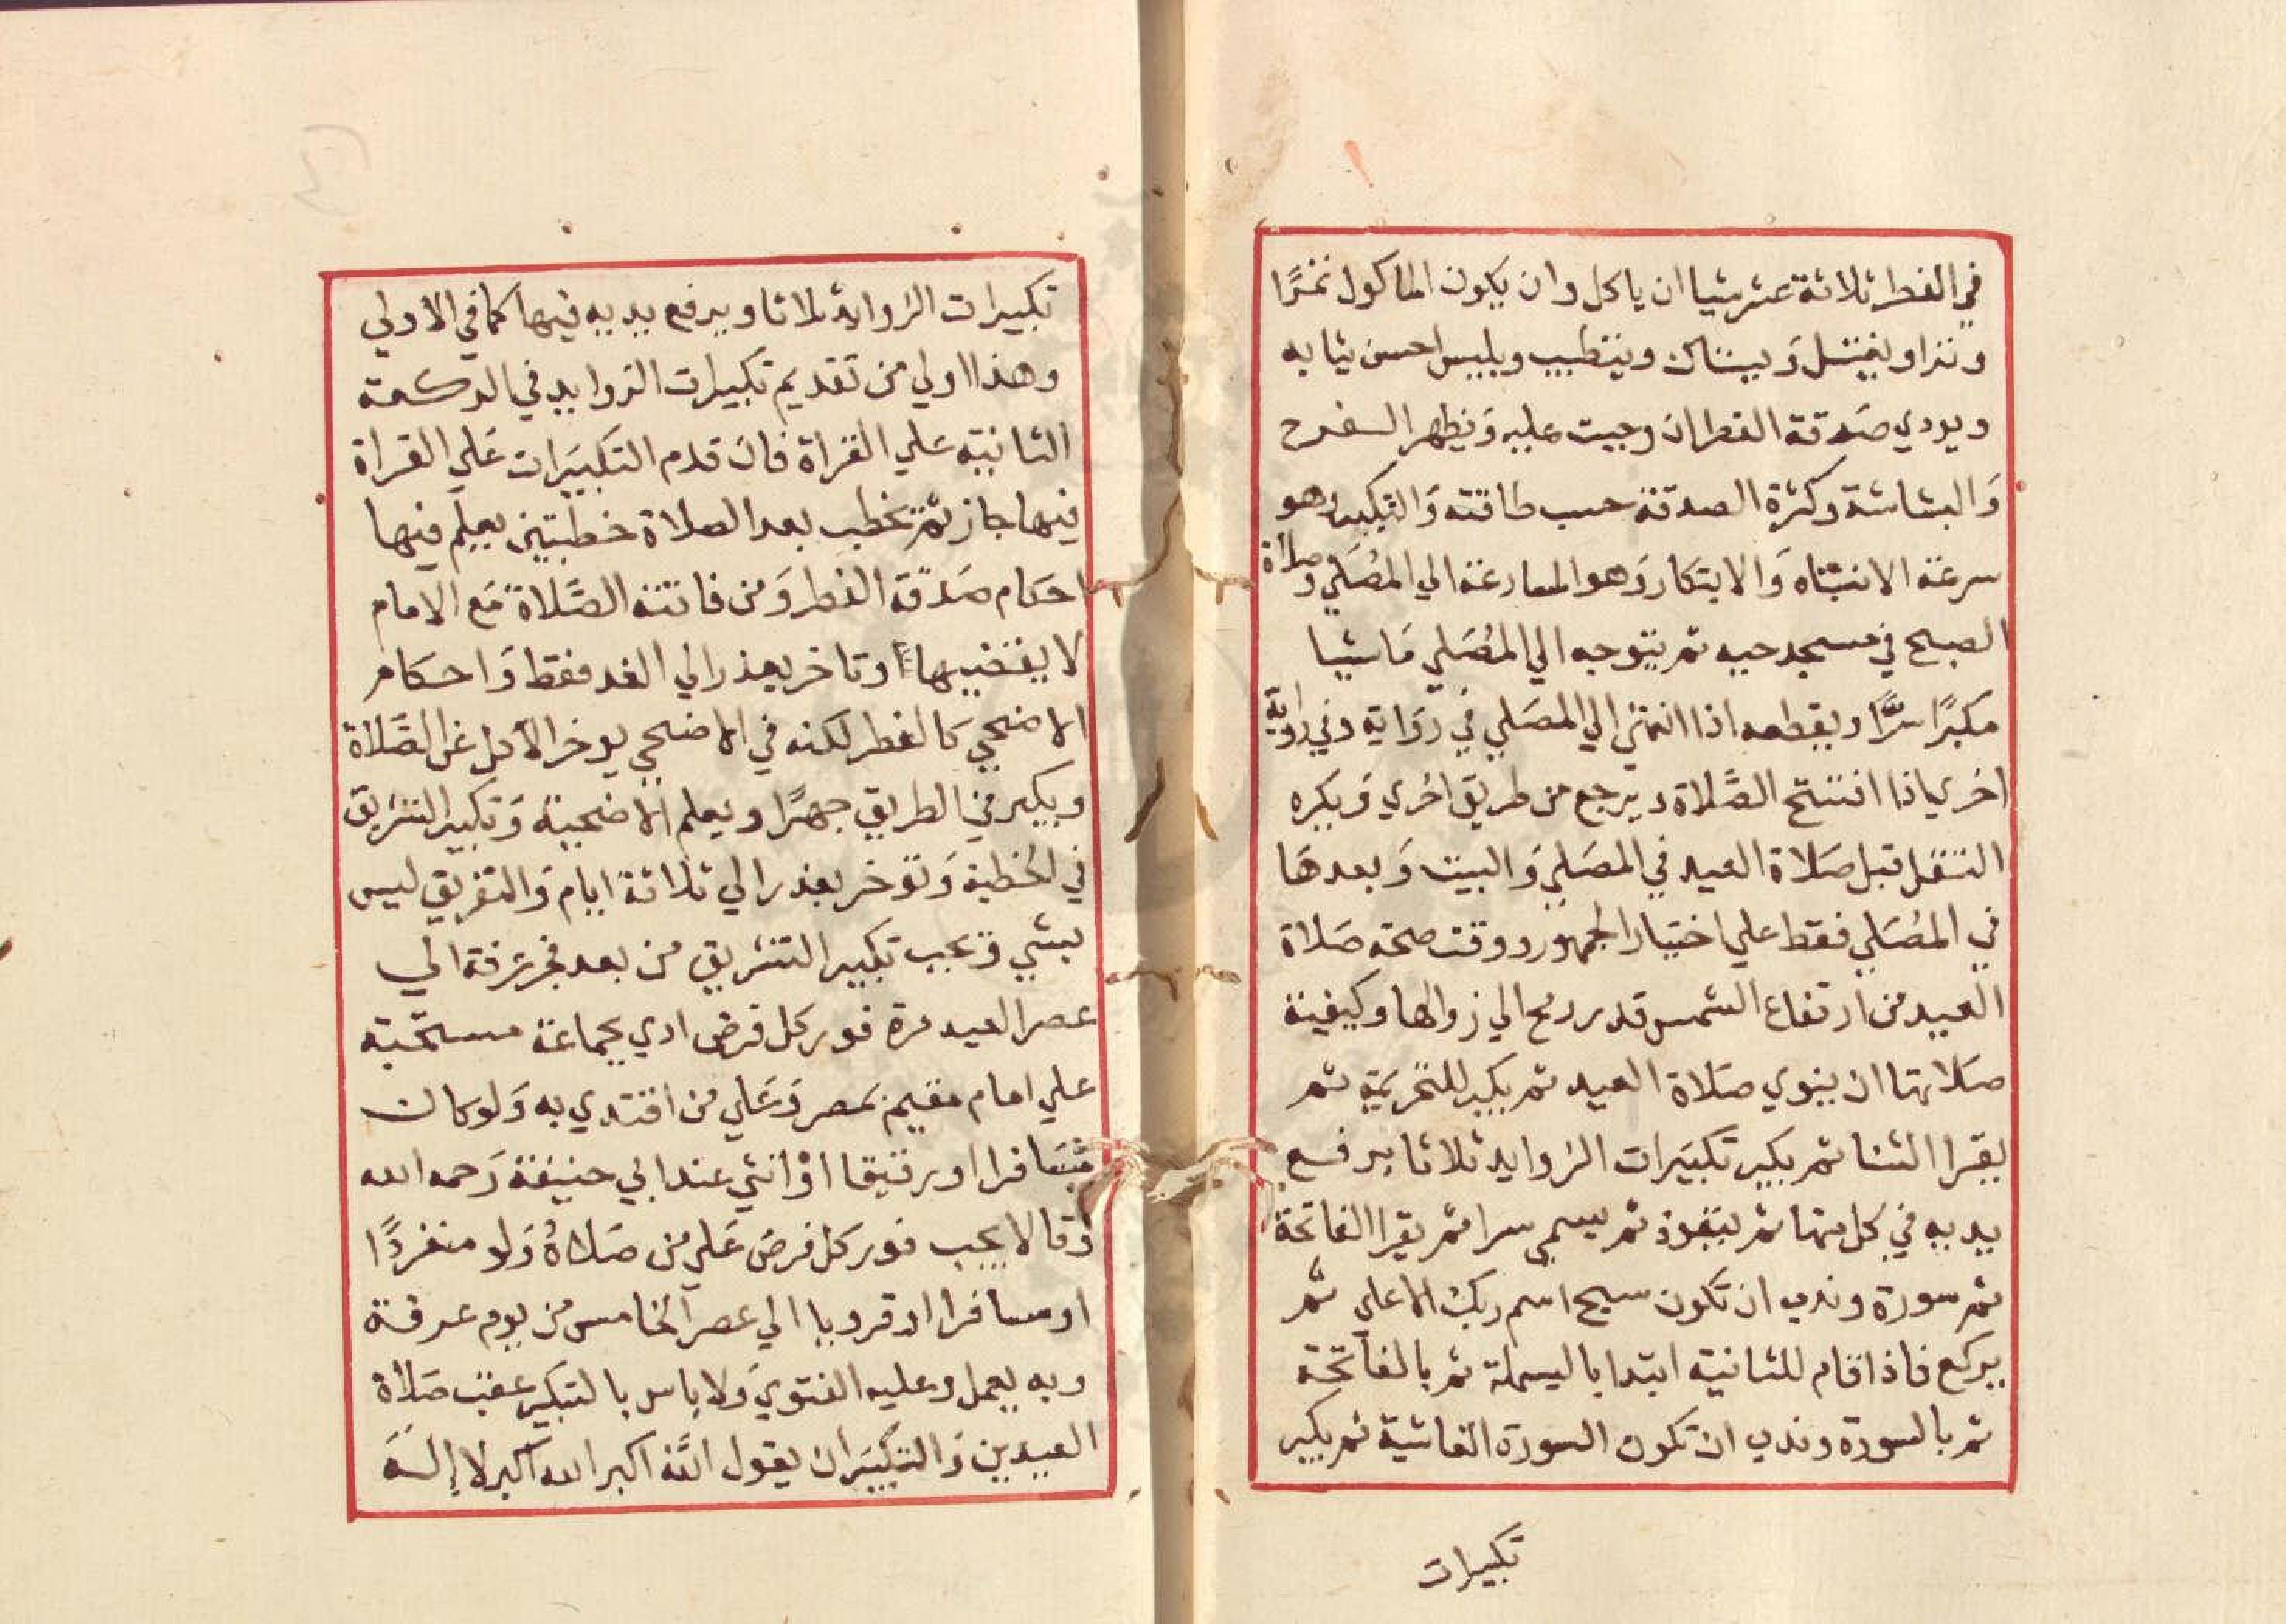 في الفطر ثلاثة عشر شيا ان ياكل وان يكون الماكول تمرًا
ووترا ويغتسل وَيستاك ويتطيب ويلبس احسن ثيابه
ويودي صَدقة الفطر ان وجبت عليه وَيظهر الفرح
وَالبشاشة وكثرة الصدقة حسب طاقته وَالتبكير وهو
سرعة الانتباه وَالابتكار وَهو المسارعة الي المصَلي وصلاة
الصبح في مسجد حيه ثم يتوجه الي المُصَلي مَاشيا
مكبرًا سرًّا ويقطعه اذا انتهي الي المصَلي في روَاية وفي رواية
اخري اذا افتتح الصَّلاة ويرجع من طريق اخري وَيكره
التنفل قبل صَلاة العيد في المصَلي وَالبيت وَبعدهَا
في المصَلي فقط علي اختيار الجمهور ووقت صحة صَلاة
العيد من ارتفاع الشمس قدر رمح الي زوالها وكيفية
صَلاتها ان ينوي صَلاة العيد ثم يكبر للتحريمة ثم
يقرا الثنا ثم يكبر تكبيَرات الزوايد ثلاثا يرفع
يديه في كل منها ثم يتعوذ ثم يسمي سرا ثم يقرا الفاتحة
ثم سورة وندب ان تكون سبح اسم ربك الاعلي ثم
يركع فاذا قام للثانية ابتدا بالبسملة ثم بالفاتحة
ثم بالسورة وندب ان تكون السورة الغاشية ثم يكبر
تكبيرات
تكبيرات الزوايد ثلاثا ويرفع يديه فيها كما في الاولي
وهذا اولي من تقديم تكبيرات الزوايد في الركعة
الثانية علي القراة فان قدم التكبيَرات عَلي القراة
فيها جاز ثم يخطب بعد الصلاة خطبتين يعلم فيها
احكام صَدقة الفطر وَمن فاتته الصَّلاة مَع الامام
لا يقضيها وتاخر بعذر الي الغد فقط وَاحكام
الاضحي كالفطر لكنه في الاضحي يوخر الاكل عن الصَّلاة
ويكبر في الطريق جهرًا ويعلم الاضحية وَتكبير التشريق
في الخطبة وَتوخر بعذر الي ثلاثة ايام وَالتعريف ليس
بشي وَيجب تكبير التشريق من بعد فجر عرفة الي
عصر العيد مرة فور كل فرض ادي بجماعة مستحبة
علي امام مقيم بمصر وَعَلي من اقتدي به وَلو كان
مسَافرا او رقيقا اوْ انثي عند ابي حنيفة رَحمه الله
وقالا يجب فور كل فرض عَلي من صَلاهُ وَلو منفردًا
او مسافرا او قرويا الي عصر الخامس من يوم عرفة
وبه يعمل وعليه الفتوي وَلا باس بالتكبير عقب صَلاة
العيدين وَالتكبيَر ان يقول اللّه اكبر الله اكبر لا إله